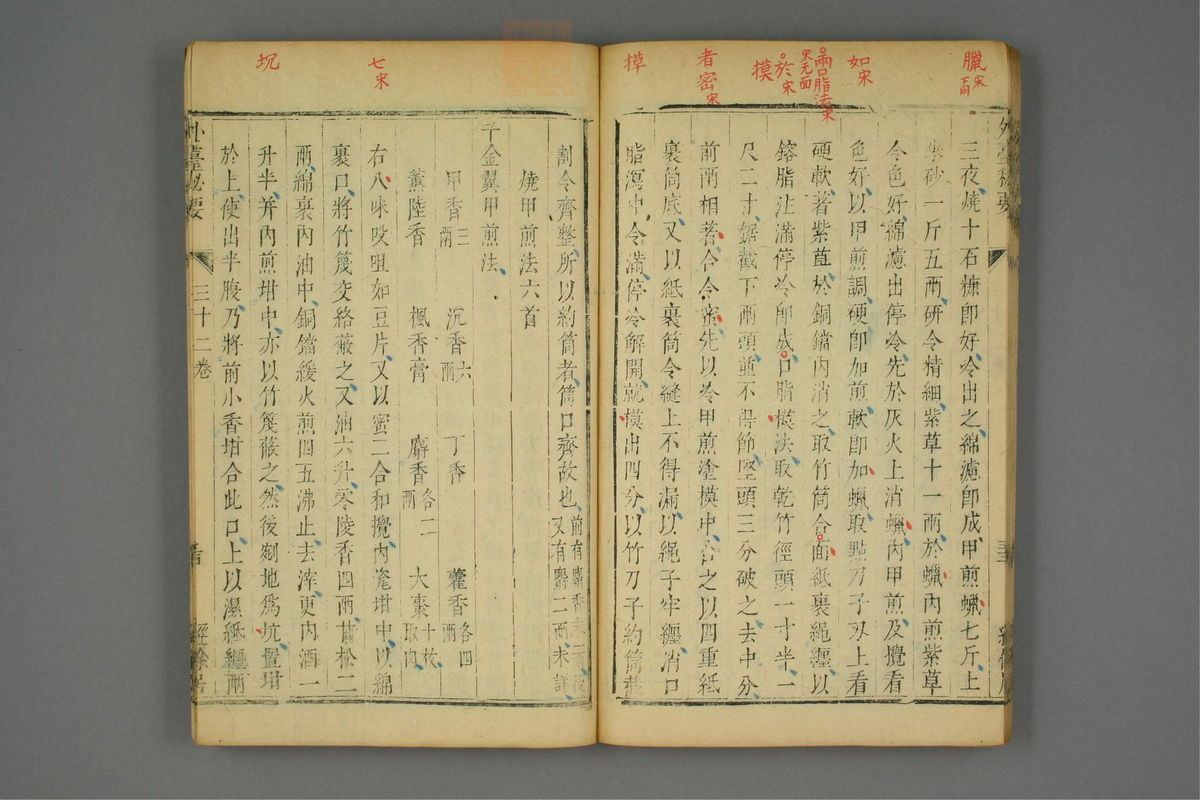 臘宋
如宋
兩口脂法宋
宋无面
於宋
摸
者密宋
摸
三夜燒十石糠卽好冷出之綿濾卽成甲煎蠟七斤上
朱砂一斤五兩研令精細紫草十一兩於蠟內煎紫草
令色好綿濾出停冷先於灰火上消蠟內甲煎及攪看
色好以甲煎調硬卽加煎軟卽加蠟取點刀子刃上看
硬軟著紫苴於銅鐺內消之取竹筒合面紙裹繩纏以
鎔脂注滿停冷卽成口脂模法取乾竹徑頭一寸半一
尺二寸鋸截下兩頭並不得節堅頭三分破之去中分
前兩相著合令蜜先以冷甲煎塗模中合之以四重紙
裹筒底又以紙裹筒令縫上不得漏以繩子牢纏消口
脂瀉中令滿停冷解開就模出四分以竹刀子約筒截
七宋
坈
割令齊整所以約筒者筒口齊故也前有麝香末一
又有麝二兩未詳
燒甲煎法六首
千金翼甲煎法
甲香三兩 沉香六兩 丁香 藿香各四兩
薰陸香 楓香膏 麝香各二兩 大棗十枚取肉
右八味㕮咀如豆片又以蜜二合和攪內瓷坩中以綿
裹口將竹篾交絡蔽之又油六升零陵香四兩甘松二
兩綿裹內油中銅鐺緩火煎四五沸止去滓更內酒一
升半并內煎坩中亦以竹篾蔽之然後剜地爲坑置坩
於上使出半腹乃將前小香坩合此口上以濕紙纏兩
外臺秘要
三十二卷
經餘居